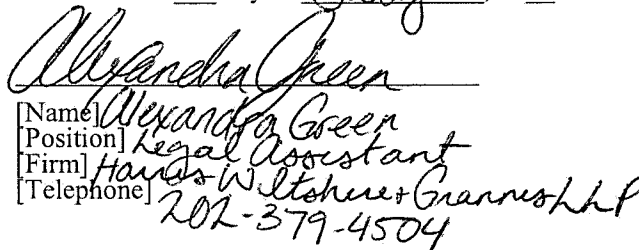 Alexandra Green
[Name] Alexandra Green
[Position] Legal Assistant
[Firm] Harris Wiltshire & Grannis LLP
[Telephone] 202-379-4504